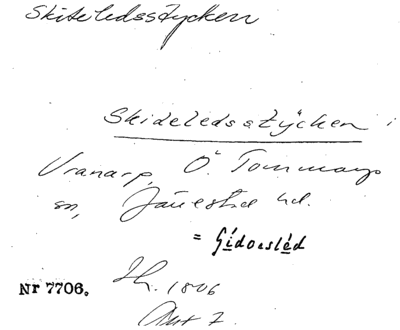 Skiteledsstycken
Skideledsstÿcken i
Vranarp, Ö. Tommarps
sn, Järrestad hd.
= Gídoesléd
Nr 7706. Lh. 1806
Akt 7